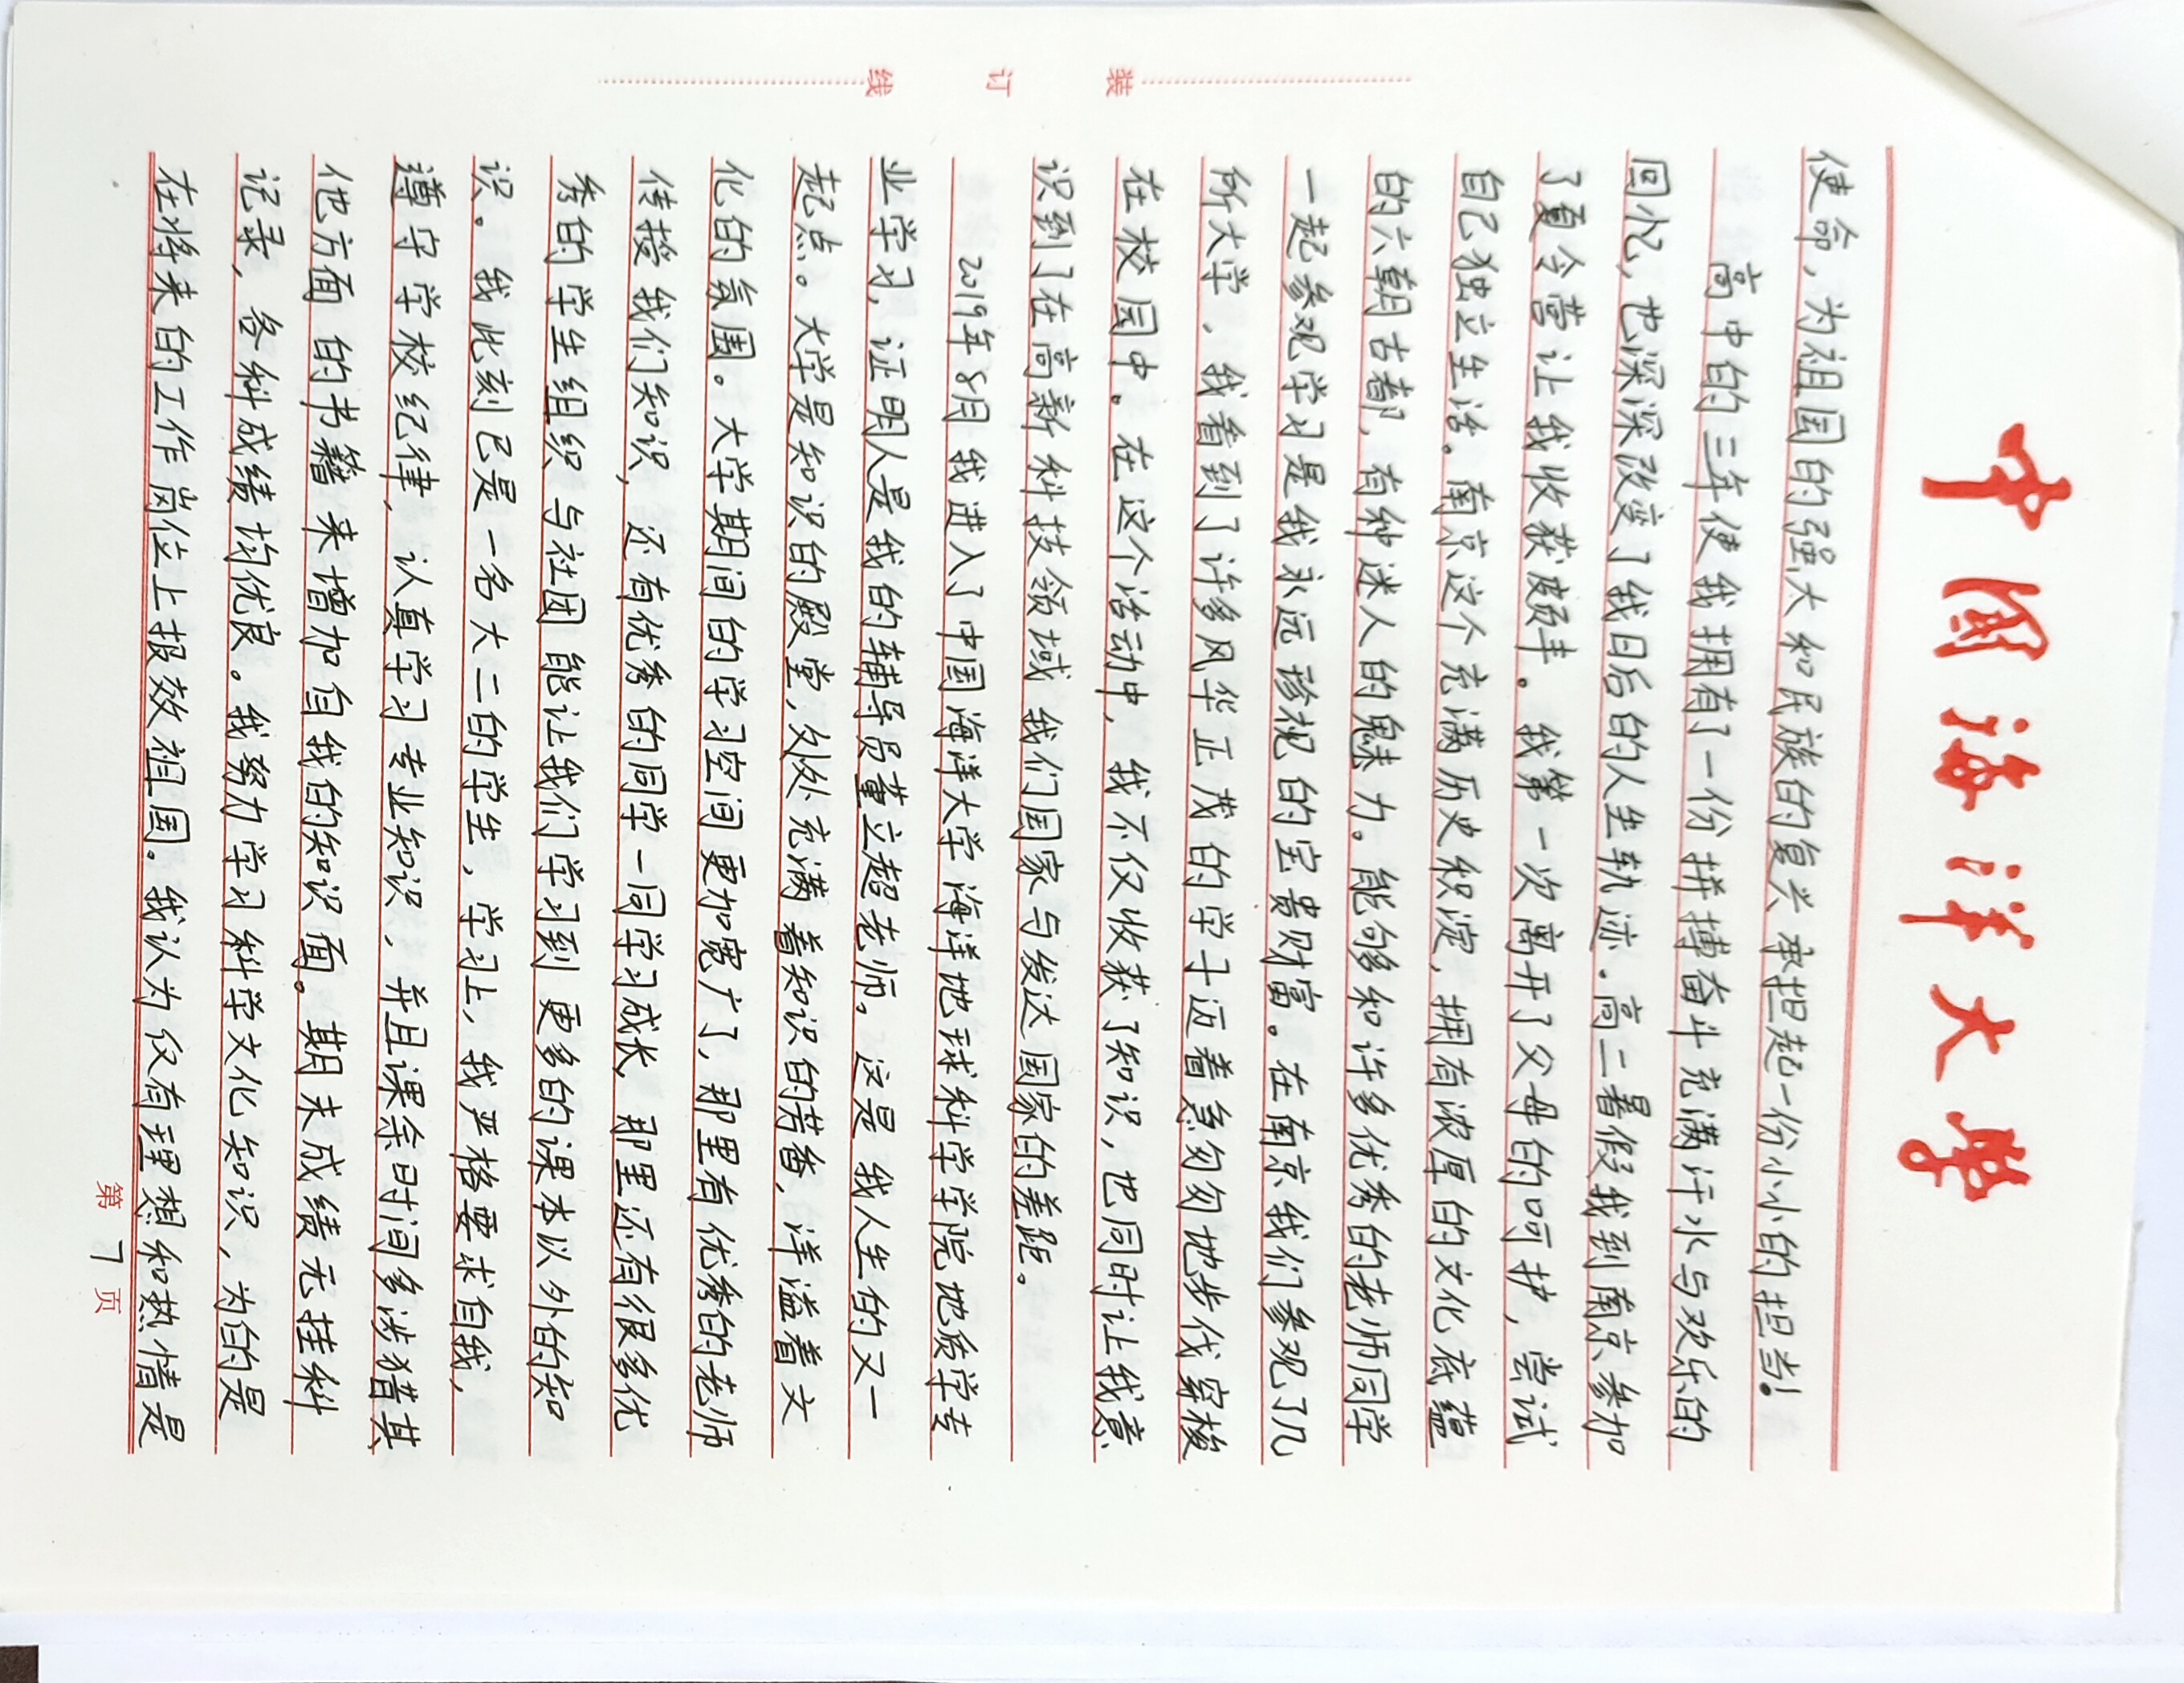 中国海洋大學
使命，为祖国的强大和民族的复兴承担起一份小小的担当！
高中的三年使我拥有了一份拼搏奋斗充满汗水与欢乐的
回忆，也深深改变了我日后的人生轨迹。高二暑假我到南京参加
了夏令营让我收获颇丰。我第一次离开了父母的呵护，尝试
自己独立生活。南京这个充满历史积淀，拥有浓厚的文化底蕴
的六朝古都，有种迷人的魅力。能够和许多优秀的老师同学
一起参观学习是我永远珍视的宝贵财富。在南京我们参观了几
所大学，我看到了许多风华正茂的学子迈着急匆匆地步伐穿梭
在校园中。在这个活动中，我不仅收获了知识，也同时让我意
识到了在高新科技领域我们国家与发达国家的差距。
2019年8月我进入了中国海洋大学海洋地球科学学院地质学专
业学习，证明人是我的辅导员董立超老师。这是我人生的又一
起点。大学是知识的殿堂，处处充满着知识的芳香，洋溢着文
化的氛围。大学期间的学习空间更加宽广了，那里有优秀的老师
传授我们知识，还有优秀的同学一同学习成长，那里还有很多优
秀的学生组织与社团能让我们学习到更多的课本以外的知
识。我此刻已是一名大二的学生，学习上，我严格要求自我，
遵守学校纪律，认真学习专业知识，并且课余时间多涉猎其
他方面的书籍来增加自我的知识面。期末成绩无挂科
记录，各科成绩均优良。我努力学习科学文化知识，为的是
在将来的工作岗位上报效祖国。我认为仅有理想和热情是
第7页
装
订
线